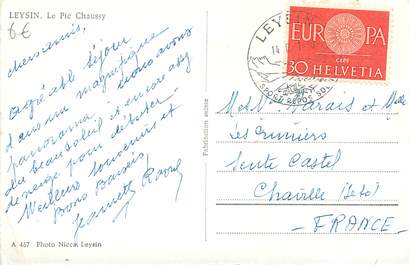 LEYSIN. Le Pic Chaussy
6€
chers amis,
Agréable séjour
dans un magnifique
panorama. nous avons
du beau soleil et encore assez
de neige pour débuter.
Meilleurs souvenirs et
Bons Baisers
Jeannette Raoul
A 467 Photo Nicca Leysin
Fabrication suisse
LEYSIN
SPORT REPOS SOL
EUROPA
CEPT
30 HELVETIA
Marais et
Les
Sente Castel
Chaville (S et O)
FRANCE